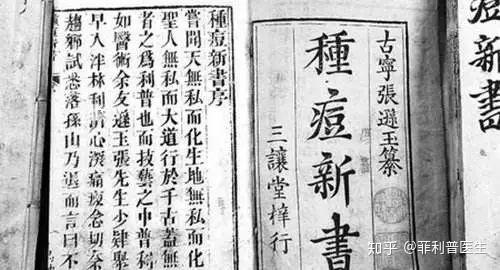 痘新書
古寧張遜玉纂
種痘新書
三讓堂梓行
種痘新書序
嘗聞天無私而化生地無私而化
聖人無私而大道行於千古蓋無
者之為利普也而技藝之中普利
如醫術余友遜玉張先生少肄聚
早入泮林利濟心深痛瘝念切
趨鄉試悉落孫山乃退而言曰不
知乎 @菲利普医生